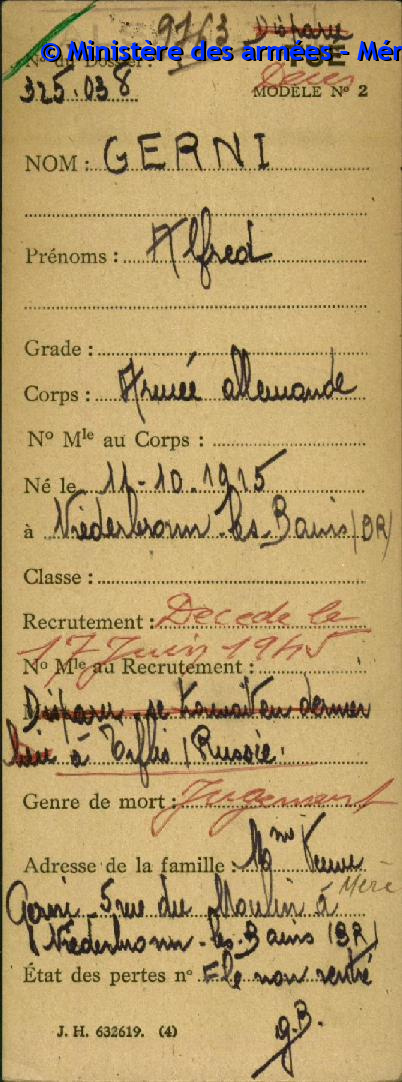 9763 Disparu
© Ministère des armées - Mér
N° du Dossier :
325.038
Décès
MODÈLE N° 2
NOM : GERNI
Prénoms : Alfred
Grade :
Corps : Armée allemande
N° Mle au Corps :
Né le 11-10.1915
à Niederbronn-les-Bains (BR)
Classe :
Recrutement : Décédé le
17 Juin 1945
N° Mle au Recrutement :
Disparu se trouvait en dernier
lieu à Tiflis (Russie.
Genre de mort : Jugement
Adresse de la famille : Mme Veuve
Mère
Gerni - 5 rue du Moulin à
Niederbronn-les-Bains (BR)
État des pertes n° non rentré
g.B.
J. H. 632619. (4)